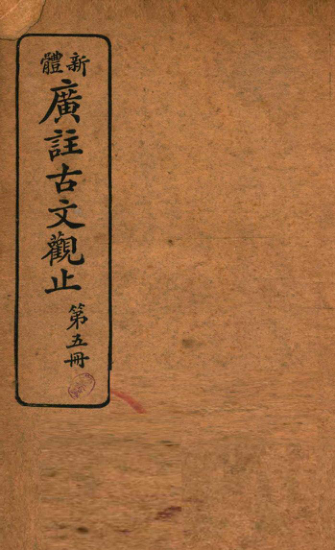 新體
廣註古文觀止
第五冊